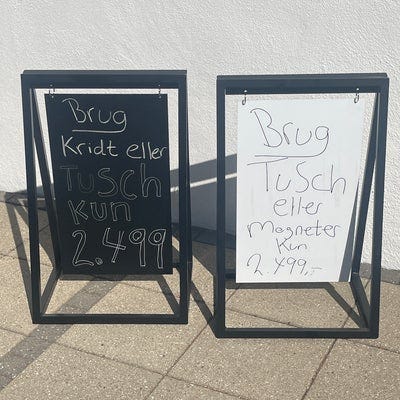 Brug
Kridt eller
Tusch
Kun
2.499
Brug
Tusch
eller
Magneter
Kun
2.499,-